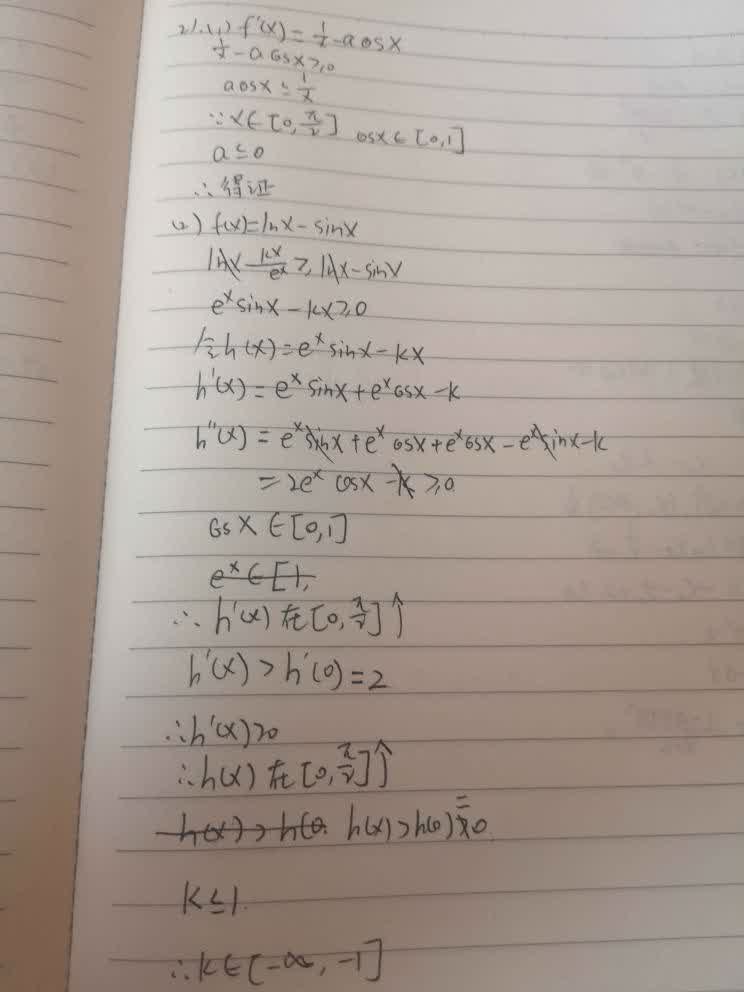 21.(1) f'(x)=1/x-acosx
1/x-acosx≥0
acosx≤1/x
∵x∈[0,π/2] cosx∈[0,1]
a≤0
∴得证
(2) f(x)=lnx-sinx
lnx-kx/e^x≥lnx-sinx
e^x sinx-kx≥0
令h(x)=e^x sinx-kx
h'(x)=e^x sinx+e^x cosx-k
h''(x)=e^x sinx+e^x cosx+e^x cosx-e^x sinx-k
=2e^x cosx-k≥0
cosx∈[0,1]
e^x∈[1,
∴h'(x)在[0,π/2]↑
h'(x)>h'(0)=2
∴h'(x)>0
∴h(x)在[0,π/2]↑
h(x)>h(0 h(x)>h(0)=0
k≤1
∴k∈[-∞,-1]